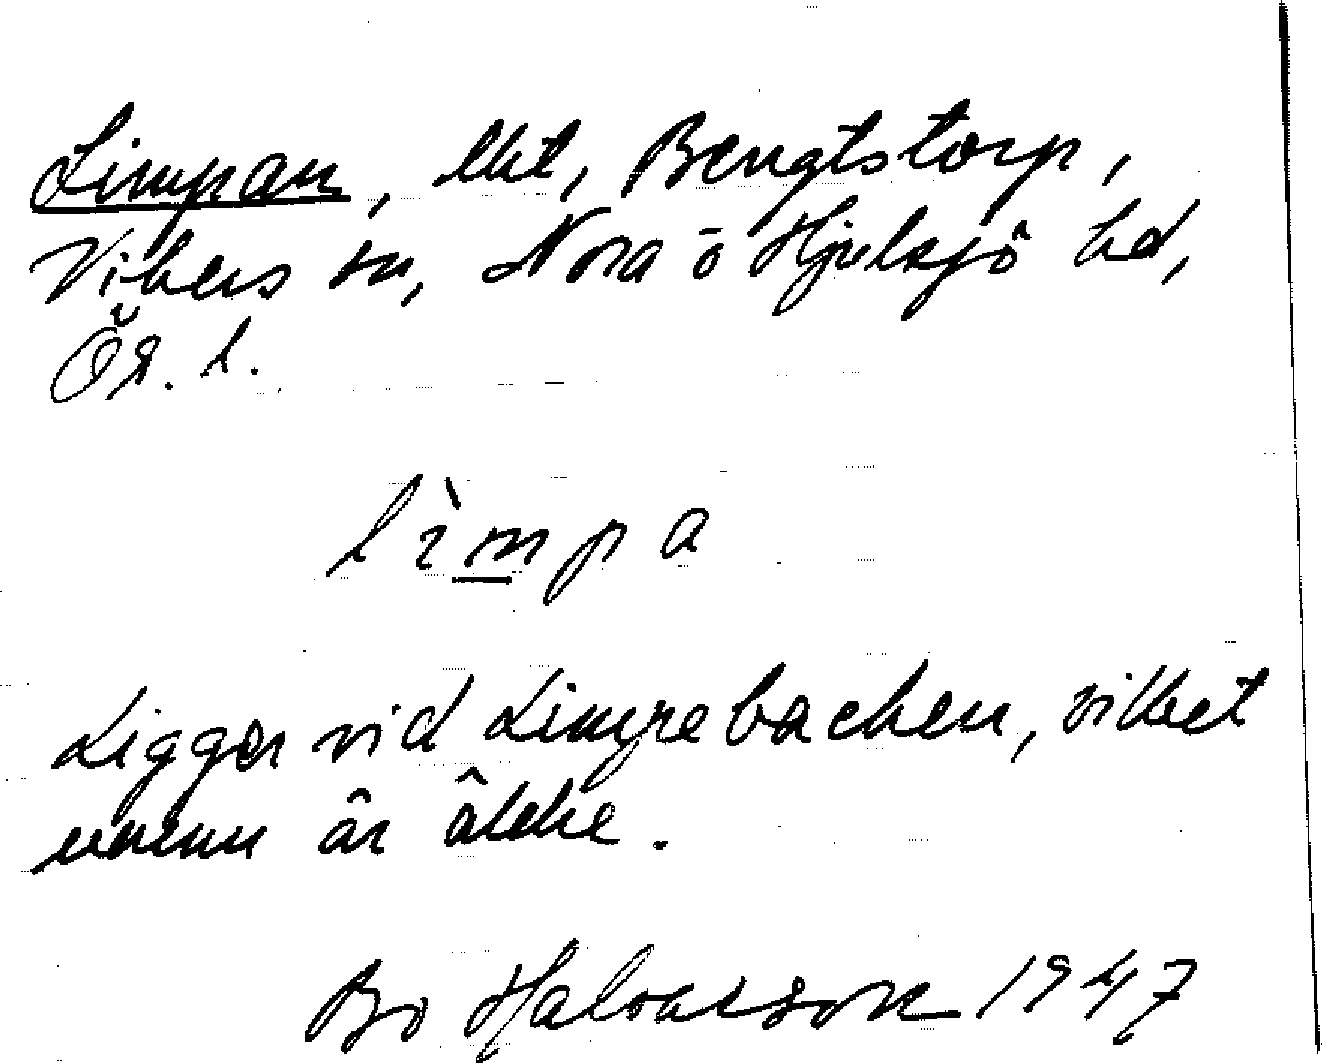 Limpan, lht, Bengtstorp,
Vikers sn, Nora o Hjulsjö hd,
Ör. l.
lìmpa
Ligger vid Limpebacken, vilket
namn är äldre.
Bo Halvarson 1947